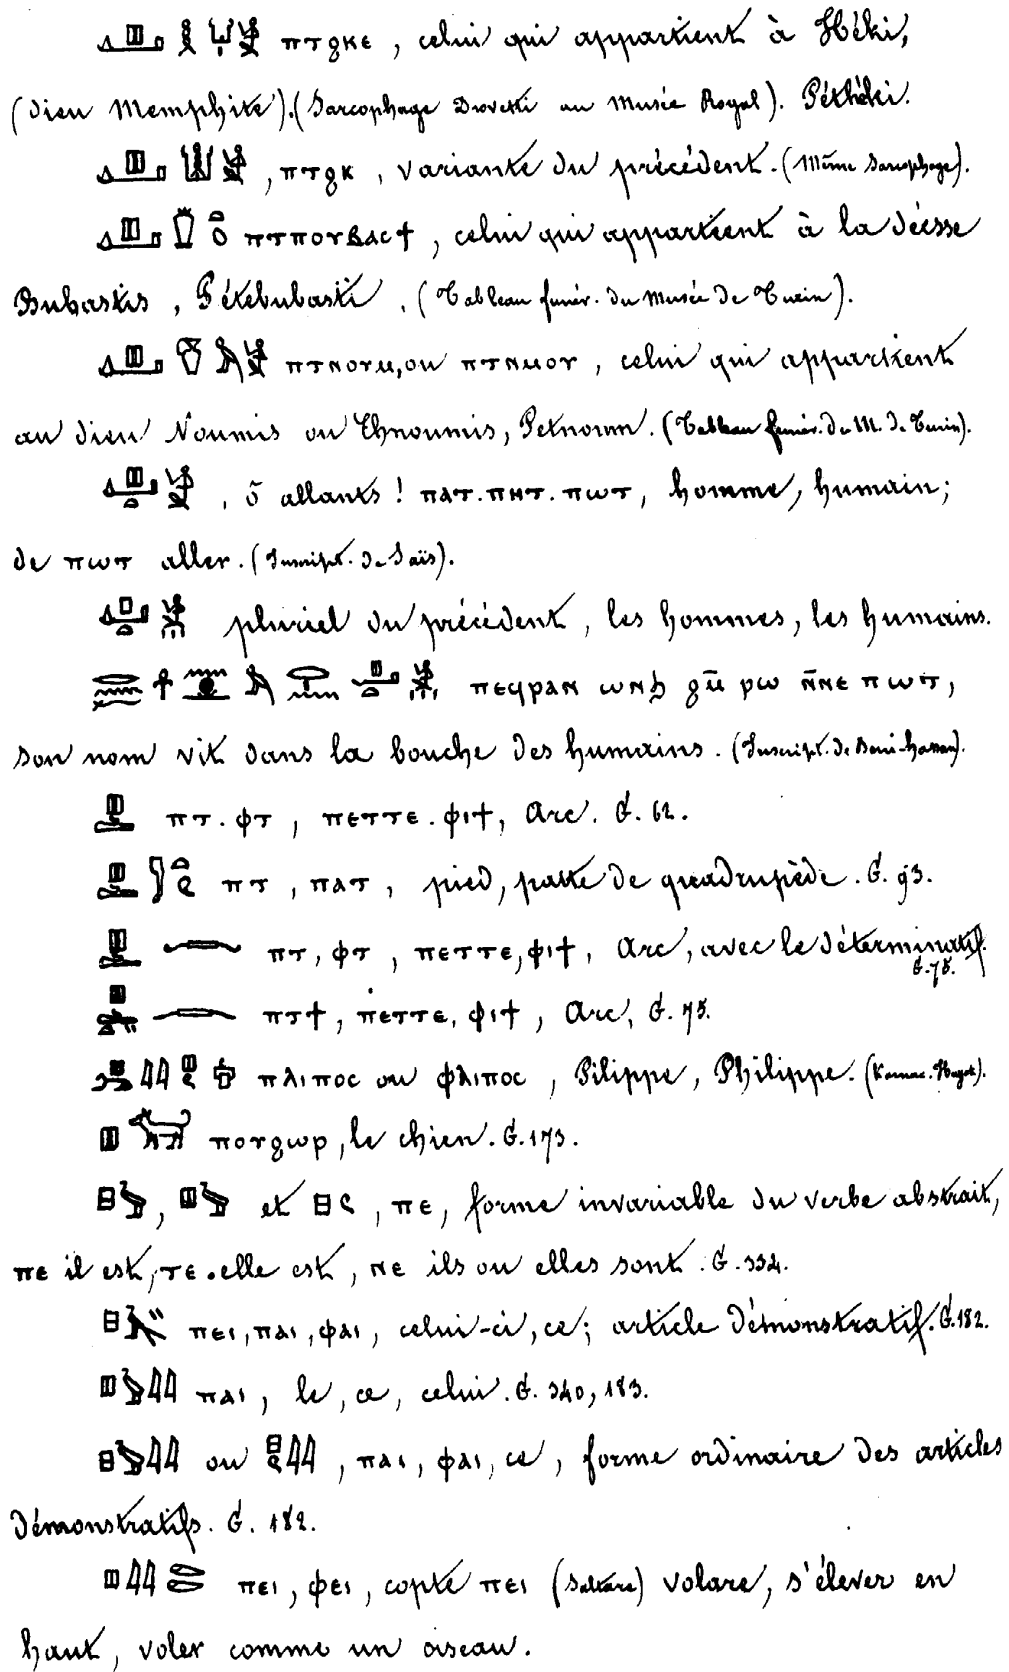 ⲡⲧϩⲕⲉ, celui qui appartient à Héki,
(dieu Memphite).(Sarcophage Drovetti au Musée Royal). Péthéki.
, ⲡⲧϩⲕ, variante du précédent. (Même Sarcophage).
ⲡⲧⲡⲟⲩⲃⲁⲥϯ, celui qui appartient à la déesse
Bubastis, Pétébubasti, (Tableau funér. du Musée de Turin).
ⲡⲧⲛⲟⲩⲙ, ou ⲡⲧⲛⲙⲟⲩ, celui qui appartient
au dieu Noumis ou Chnoumis, Petnoum. (Tableau funér. du M. de Turin).
, ô allants! ⲡⲁⲧ. ⲡⲏⲧ. ⲡⲱⲧ, homme, humain;
de ⲡⲱⲧ aller. (Inscript. de Saïs).
pluriel du précédent, les hommes, les humains.
ⲡⲉϥⲣⲁⲛ ⲱⲛϧ ϩⲙ̄ ⲣⲱ ⲛ̄ⲛⲉ ⲡⲱⲧ,
son nom vit dans la bouche des humains. (Inscript. de Beni-hassan).
ⲡⲧ. ⲫⲧ, ⲡⲉⲧⲧⲉ. ⲫⲓϯ, Arc. G. 62.
ⲡⲧ, ⲡⲁⲧ, pied, patte de quadrupède. G. 93.
ⲡⲧ, ⲫⲧ, ⲡⲉⲧⲧⲉ, ⲫⲓϯ, Arc, avec le déterminatif.
G. 75.
ⲡⲧϯ, ⲡⲉⲧⲧⲉ, ⲫⲓϯ, Arc, G. 75.
ⲡⲗⲓⲡⲟⲥ ou ⲫⲗⲓⲡⲟⲥ, Pilippe, Philippe. (Karnac. Huyot).
ⲡⲟⲩϩⲱⲣ, le chien. G. 173.
, et , ⲡⲉ, forme invariable du verbe abstrait,
ⲡⲉ il est, ⲧⲉ. elle est, ⲛⲉ ils ou elles sont. G. 334.
ⲡⲉⲓ, ⲡⲁⲓ, ⲫⲁⲓ, celui-ci, ce; article démonstratif. G. 182.
ⲡⲁⲓ, le, ce, celui. G. 340, 183.
ou , ⲡⲁⲓ, ⲫⲁⲓ, ce, forme ordinaire des articles
démonstratifs. G. 182.
ⲡⲉⲓ, ⲫⲉⲓ, copte ⲡⲉⲓ (saltare) volare, s'élever en
haut, voler comme un oiseau.